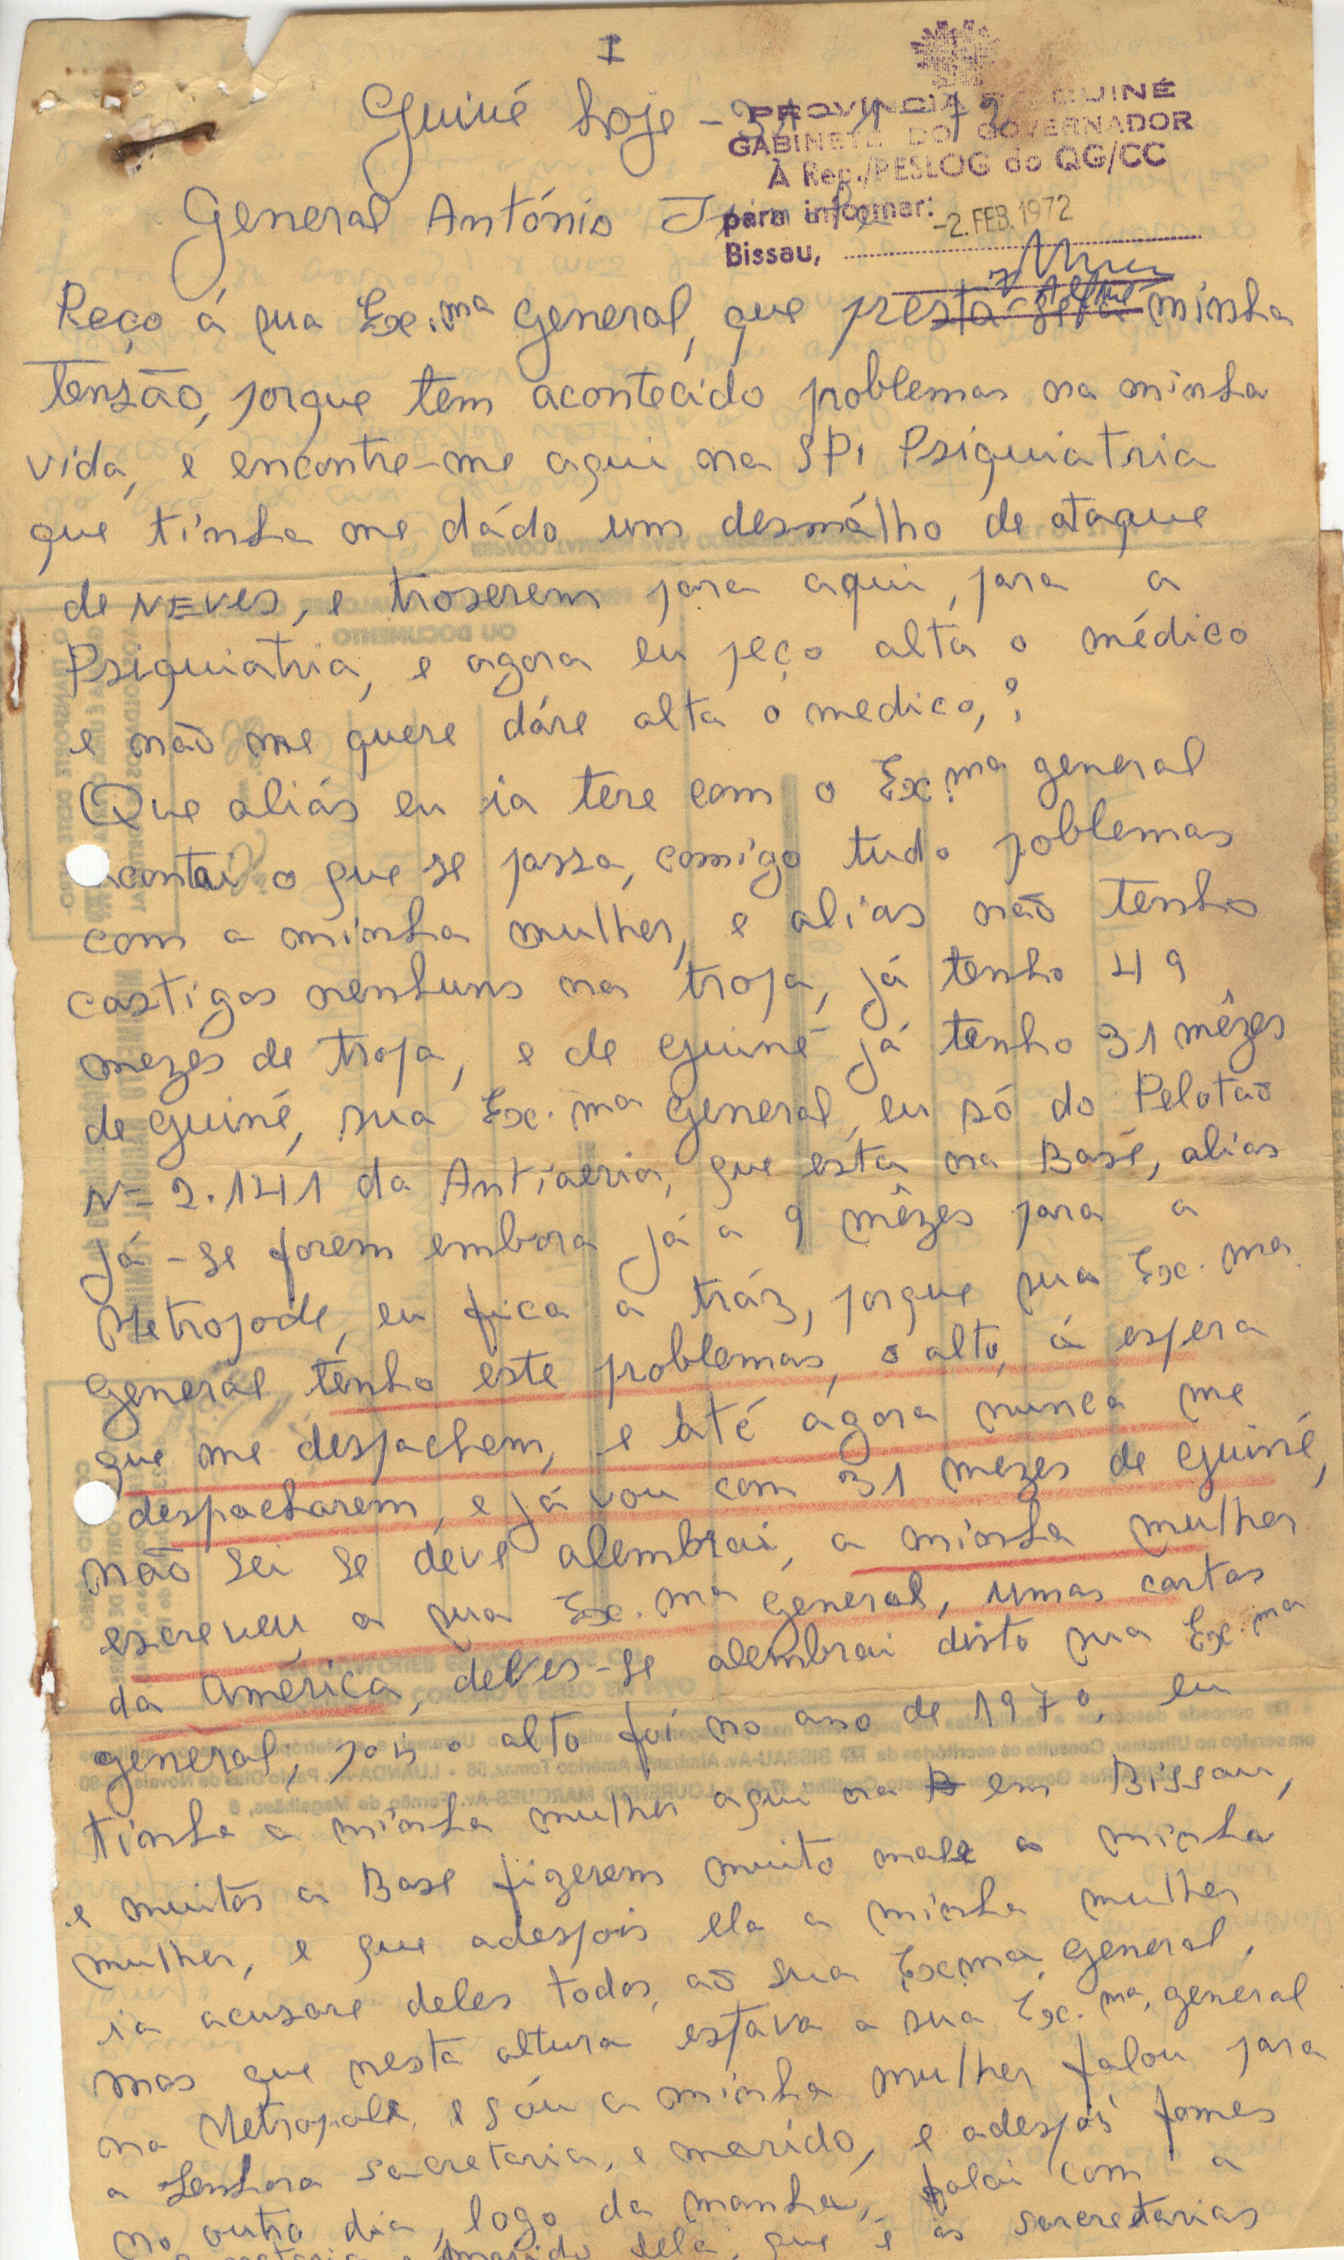 I
Guiné hoje - 31 1 72
PROVINCIA DE GUINÉ
GABINETE DO GOVERNADOR
À Rep./PESLOG do QG/CC
para informar:
Bissau, -2. FEB. 1972
General António
Peço á sua Ex.ma general, que presta minha
tensão, porque tem acontecido problemas na minha
vida, e encontre-me aqui na SPI Psiquiatria
que tinha me dádo um desmálho de ataque
de NEVES, e troserem para aqui, para a
Psiquiatria, e agora eu peço alta o médico
e não me quere dáre alta o medico,?
Que aliás eu ia tere com o Ex.ma general
contai o que se passa, comigo tudo poblemas
com a minha mulher, e alias não tenho
castigos nenhuns na tropa, já tenho 49
mezes de tropa, e de guiné já tenho 31 mêzes
de guiné, sua Ex.ma general, eu só do Pelotão
Nº 2.141 da Antiaeria, que esta na Base, alias
já-se forem embora já a 9 mêzes para a
Metropode, eu fica a tráz, porque sua Ex.ma
general tenho este problemas, o alto, á espera
que me despachem, e até agora nunca me
despacharem, e já vou com 31 mezes de guiné,
não sei se deve alembrai, a minha mulher
escreveu a sua Ex.ma general, umas cartas
da América, deves-se alembrai disto sua Ex.ma
general, pois o alto foi no ano de 1970, eu
tinha a minha mulher aqui na B em Bissau,
e muitos a Base fizerem muito male a minha
mulher, e que adespois ela a minha mulher
ia acusare deles todos, aõ sua Ex.ma general,
mas que nesta altura estava a sua Ex.ma, general
na Metropole, e sóu a minha mulher falou para
a senhora sacretaria, e marido, e adespós fomes
no outro dia, logo da manha, falai com a
marido dela, que é as sacretarias